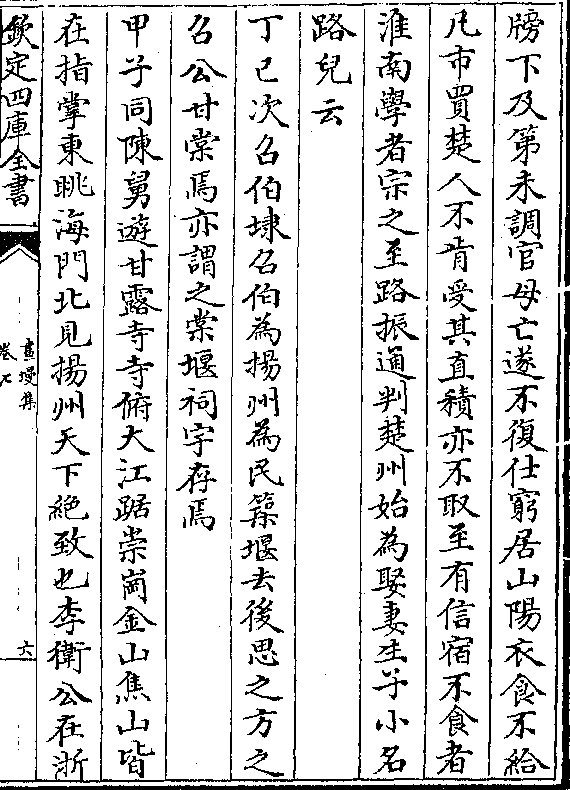 牓下及第未調官母亡遂不復仕窮居山陽衣食不給
凡市買楚人不肯受其直積亦不取至有信宿不食者
淮南學者宗之至路振通判楚州始為娶妻生子小名
路兒云
丁已次召伯埭召伯為揚州為民築堰去後思之方之
召公甘棠焉亦謂之棠堰祠宇存焉
甲子同陳舅遊甘露寺寺俯大江踞崇崗金山焦山皆
在指掌東眺海門北見揚州天下絶致也李衛公在浙
欽定四庫全書
畫墁集
卷七
六